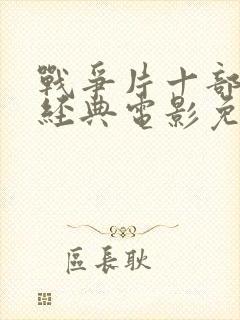 戰爭片十部
經典電影免
區長耿